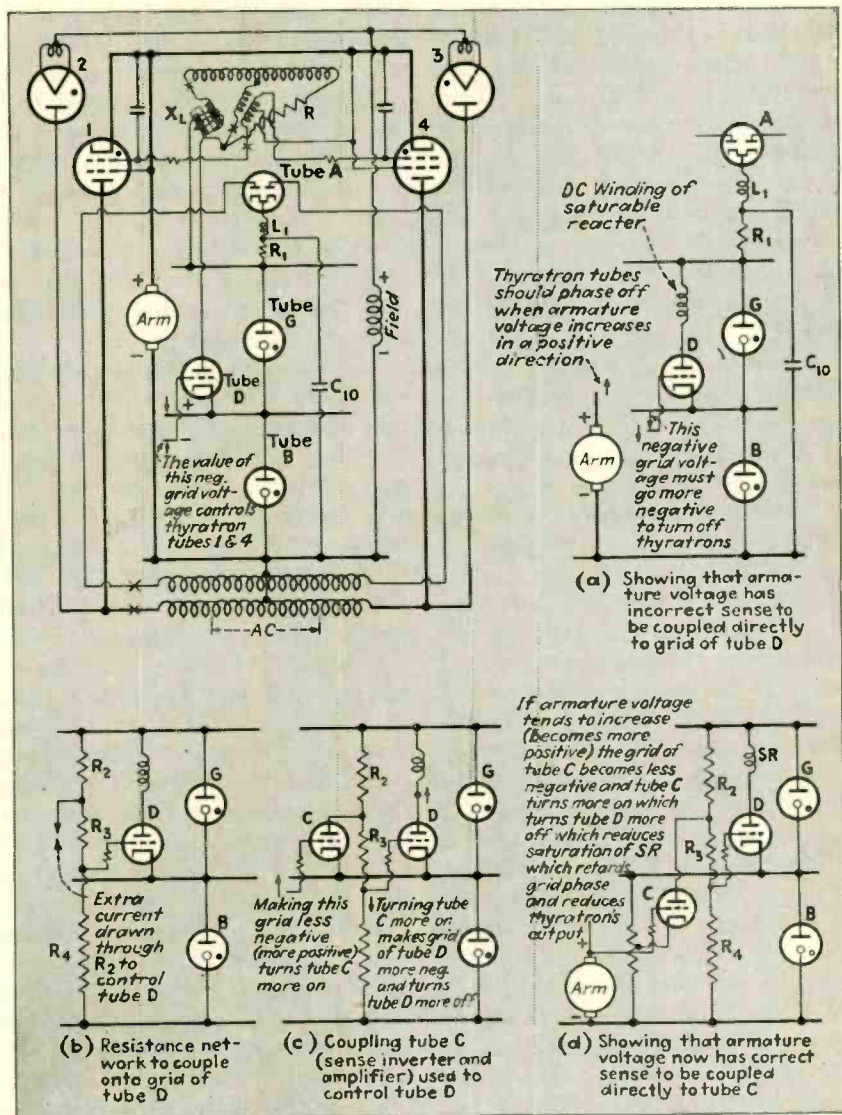 2
3
X_L
R
1
4
Tube A
A
L₁
R₁
+
Arm
-
Tube
G
+
Field
-
Tube
D
+
-
C₁₀
Tube
B
The value of
this neg.
grid volt-
age controls
thyratron
tubes 1 & 4
AC
DC Winding of
saturable
reacter
L₁
R₁
Thyratron tubes
should phase off
when armature
voltage increases
in a positive
direction
G
D
C₁₀
+
Arm
-
This
negative
grid volt-
age must
go more
negative
to turn off
thyratrons
B
(a) Showing that arma-
ture voltage has
incorrect sense to
be coupled directly
to grid of tube D
R₂
G
D
R₃
Extra
current
drawn
through
R₂ to
control
tube D
R₄
B
(b) Resistance net-
work to couple
onto grid of
tube D
R₂
G
C
D
R₃
Making this
grid less
negative
(more positive)
turns tube C
more on
Turning tube
C more on
makes grid
of tube D
more neg.
and turns
tube D more off
(c) Coupling tube C
(sense inverter and
amplifier) used to
control tube D
If armature voltage
tends to increase
(becomes more
positive) the grid of
tube C becomes less
negative and tube C
turns more on which
turns tube D more
off which reduces
saturation of SR
which retards
grid phase
and reduces
thyratron's
output
SR
R₂
G
D
R₃
C
B
R₄
+
Arm
-
(d) Showing that armature
voltage now has correct
sense to be coupled
directly to tube C